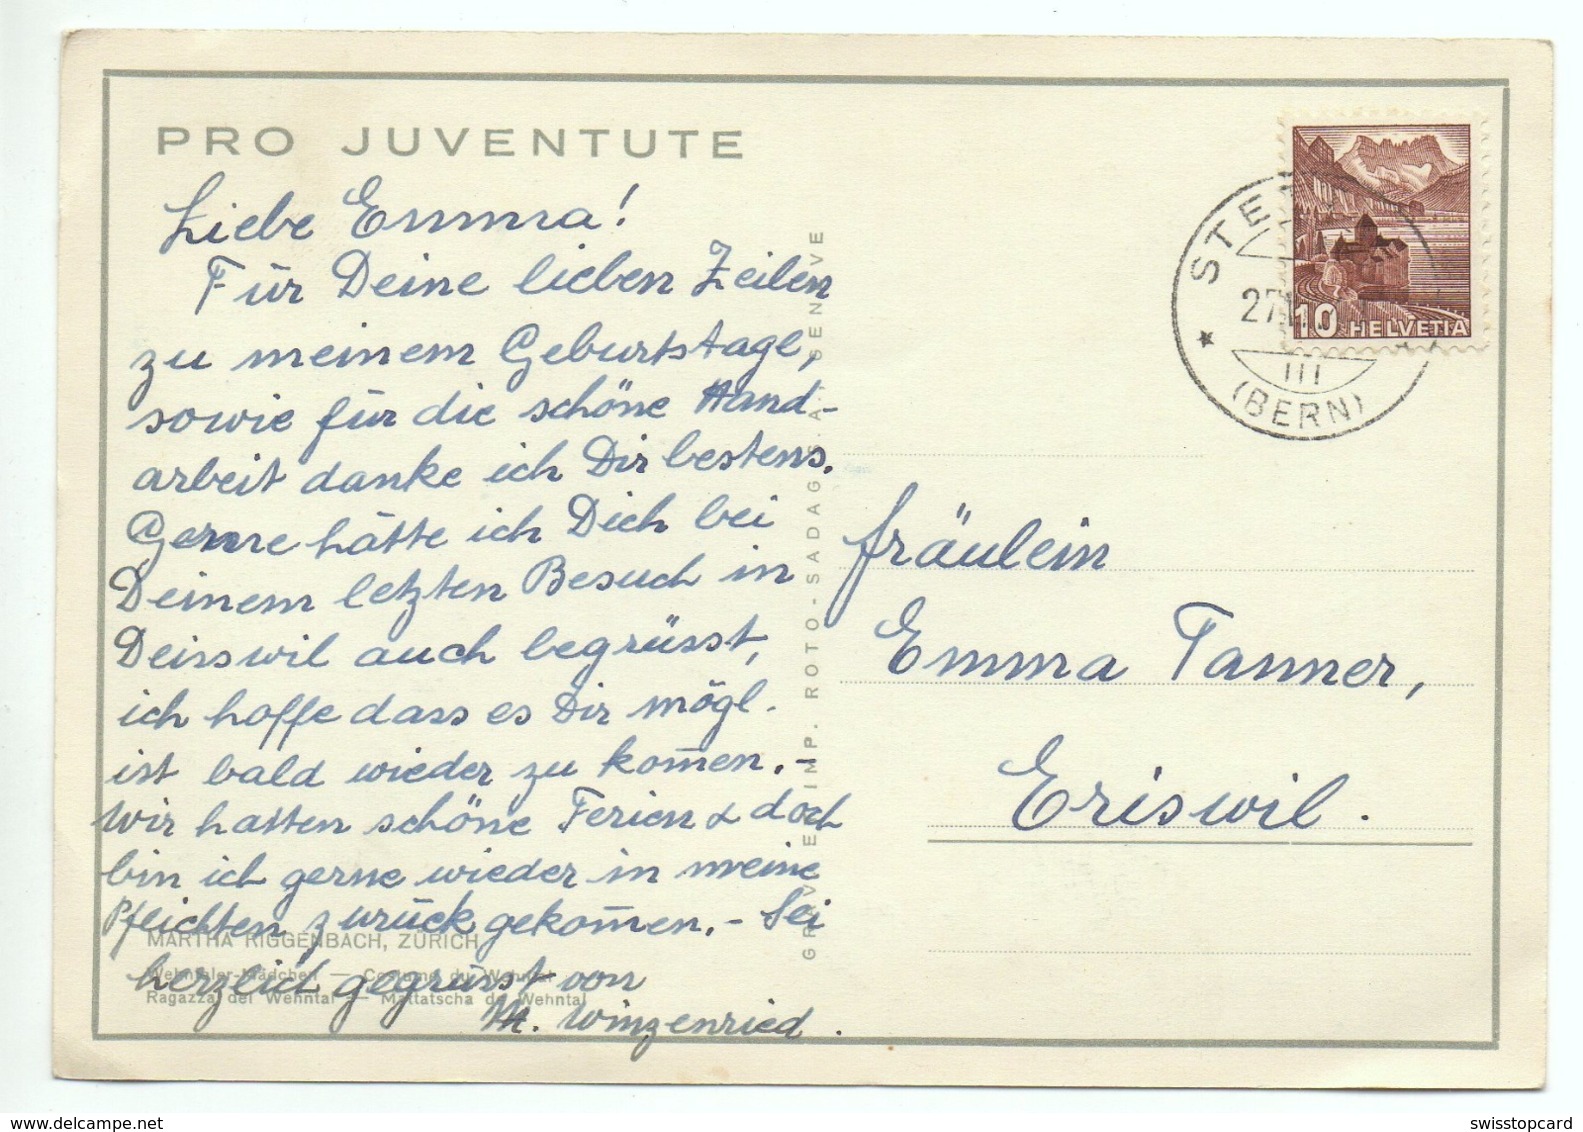 PRO JUVENTUTE
Liebe Emma!
Für Deine lieben Zeilen
zu meinem Geburtstage,
sowie für die schöne Hand-
arbeit danke ich Dir bestens.
Gerne hätte ich Dich bei
Deinem letzten Besuch in
Deisswil auch begrüsst,
ich hoffe dass es Dir mögl.
ist bald wieder zu kom̄en.-
Wir hatten schöne Ferien & doch
bin ich gerne wieder in meine
Pflichten zurück gekom̄en.- Sei
herzlich gegrüsst von
M. Winzenried.
MARTHA RIGGENBACH, ZÜRICH
Wehntaler-Mädchen — Costume du Wehntal
Ragazza del Wehntal — Mattatscha de Wehntal
IMP. ROTO-SADAG S.A. GENÈVE
HELVETIA
10
27
III
(BERN)
Fräulein
Emma Tanner,
Eriswil.
www.delcampe.net
swisstopcard